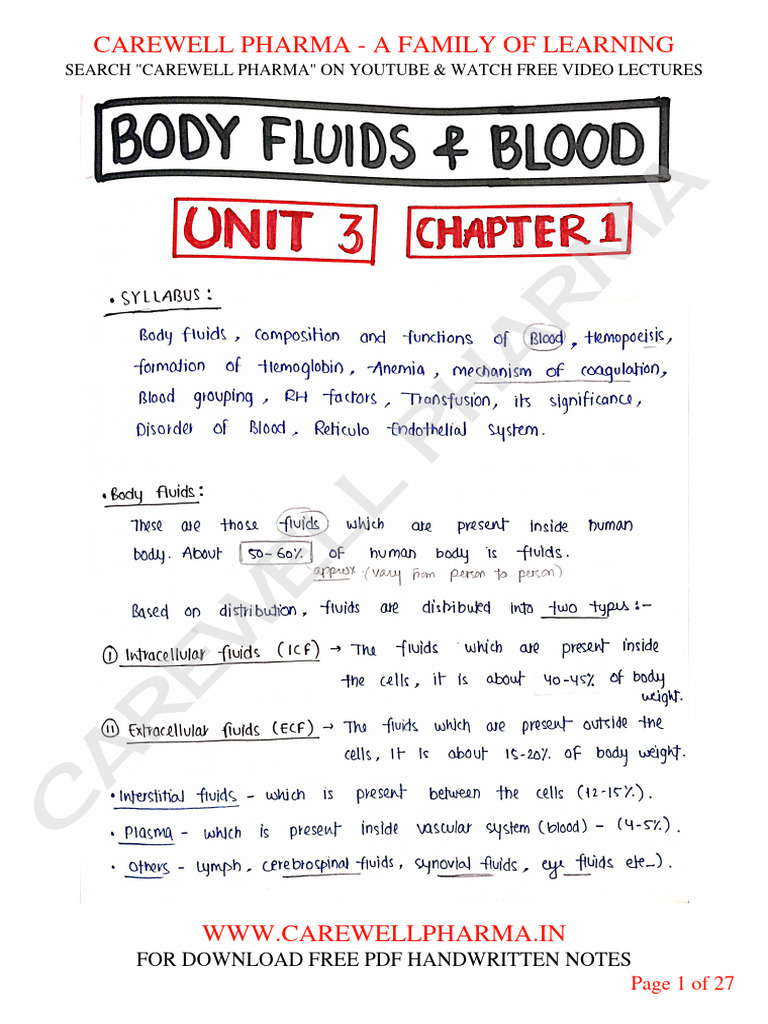 CAREWELL PHARMA - A FAMILY OF LEARNING
SEARCH "CAREWELL PHARMA" ON YOUTUBE & WATCH FREE VIDEO LECTURES
BODY FLUIDS & BLOOD
UNIT 3 CHAPTER 1
• SYLLABUS :
Body fluids, composition and functions of Blood, Hemopoeisis,
formation of Hemoglobin, Anemia, mechanism of coagulation,
Blood grouping, RH factors, Transfusion, its significance,
Disorder of Blood, Reticulo Endothelial system.
• Body fluids :
These are those fluids which are present inside human
body. About 50-60% of human body is fluids.
approx. (vary from person to person)
Based on distribution, fluids are distributed into two types :-
(I) Intracellular fluids (ICF) → The fluids which are present inside
the cells, it is about 40-45% of body
weight.
(II) Extracellular fluids (ECF) → The fluids which are present outside the
cells, it is about 15-20% of body weight.
• Interstitial fluids - which is present between the cells (12-15%).
• Plasma - which is present inside vascular system (blood) - (4-5%).
• Others - Lymph, cerebrospinal fluids, synovial fluids, eye fluids etc...).
CAREWELL PHARMA
WWW.CAREWELLPHARMA.IN
FOR DOWNLOAD FREE PDF HANDWRITTEN NOTES
Page 1 of 27